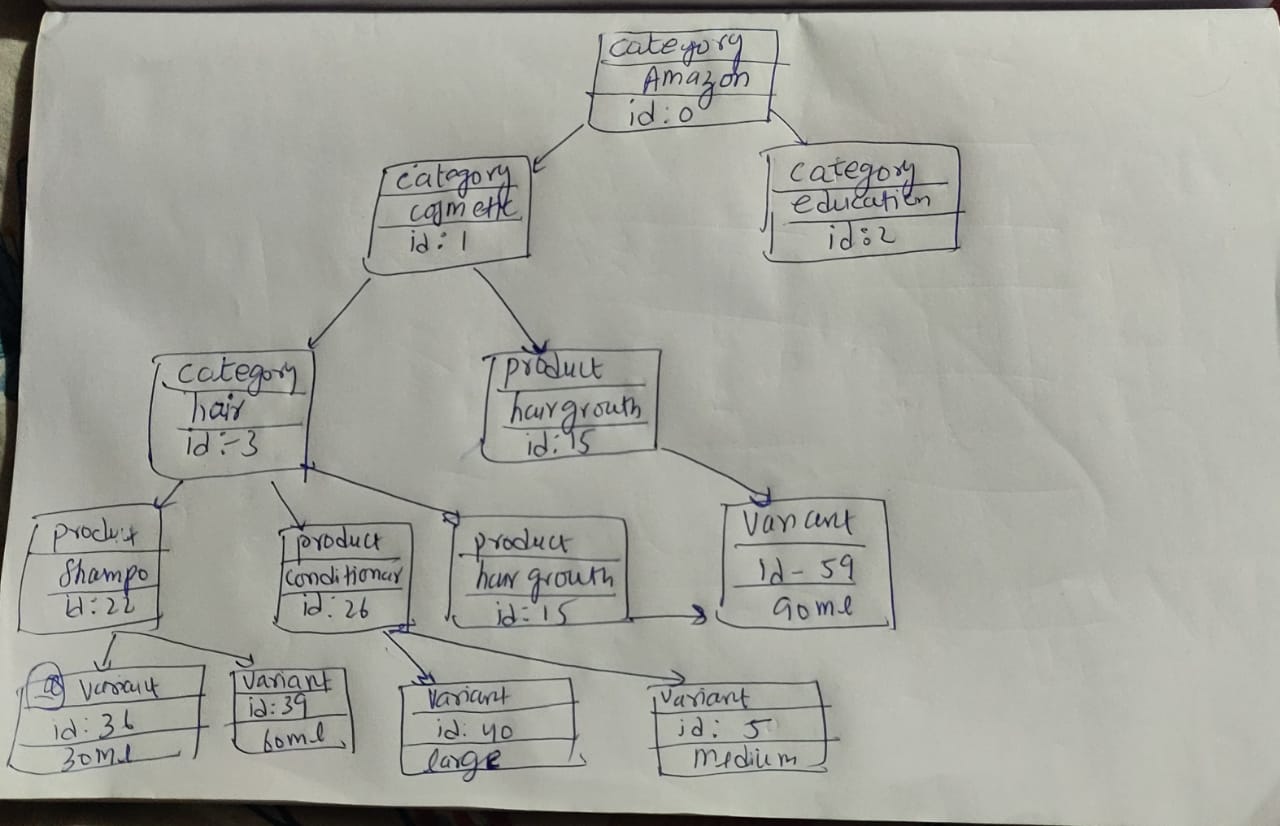 category
Amazon
id: 0
category
cosmetic
id: 1
category
education
id: 2
category
hair
id:-3
product
hair grouth
id: 15
product
Shampo
id: 22
product
conditionar
id: 26
product
hair grouth
id: 15
Variant
Id - 59
90ml
Variant
id: 36
30ml
Variant
id: 39
60ml
Variant
id: 40
large
Variant
id: 5
Medium